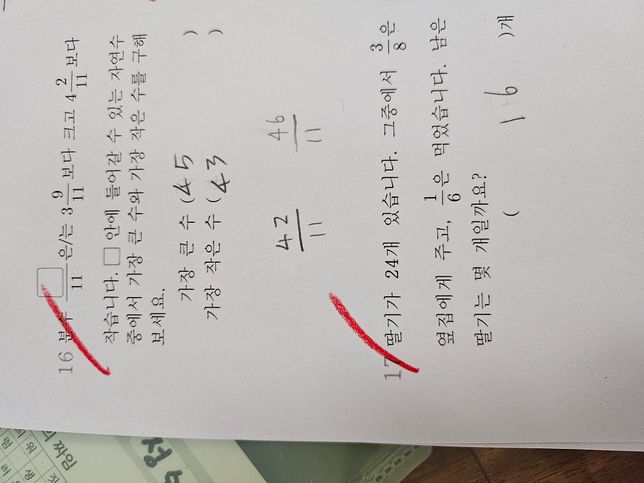 16 분수 □/11 은/는 3 9/11 보다 크고 4 2/11 보다
작습니다. □ 안에 들어갈 수 있는 자연수
중에서 가장 큰 수와 가장 작은 수를 구해
보세요.
가장 큰 수 (45 )
가장 작은 수 (43 )
42/11 46/11
17 딸기가 24개 있습니다. 그중에서 3/8은
옆집에게 주고, 1/6은 먹었습니다. 남은
딸기는 몇 개일까요?
( 16 )개